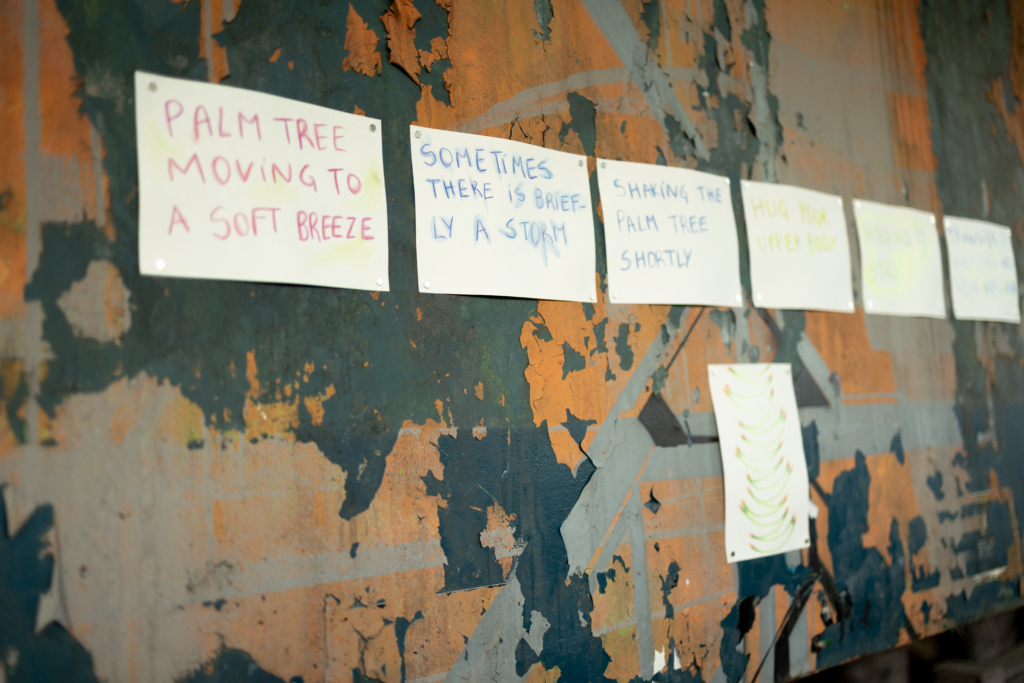 PALM TREE
MOVING TO
A SOFT BREEZE
SOMETIMES
THERE IS BRIEF-
LY A STORM
SHAKING THE
PALM TREE
SHORTLY
HUG YOUR
UPPER BODY